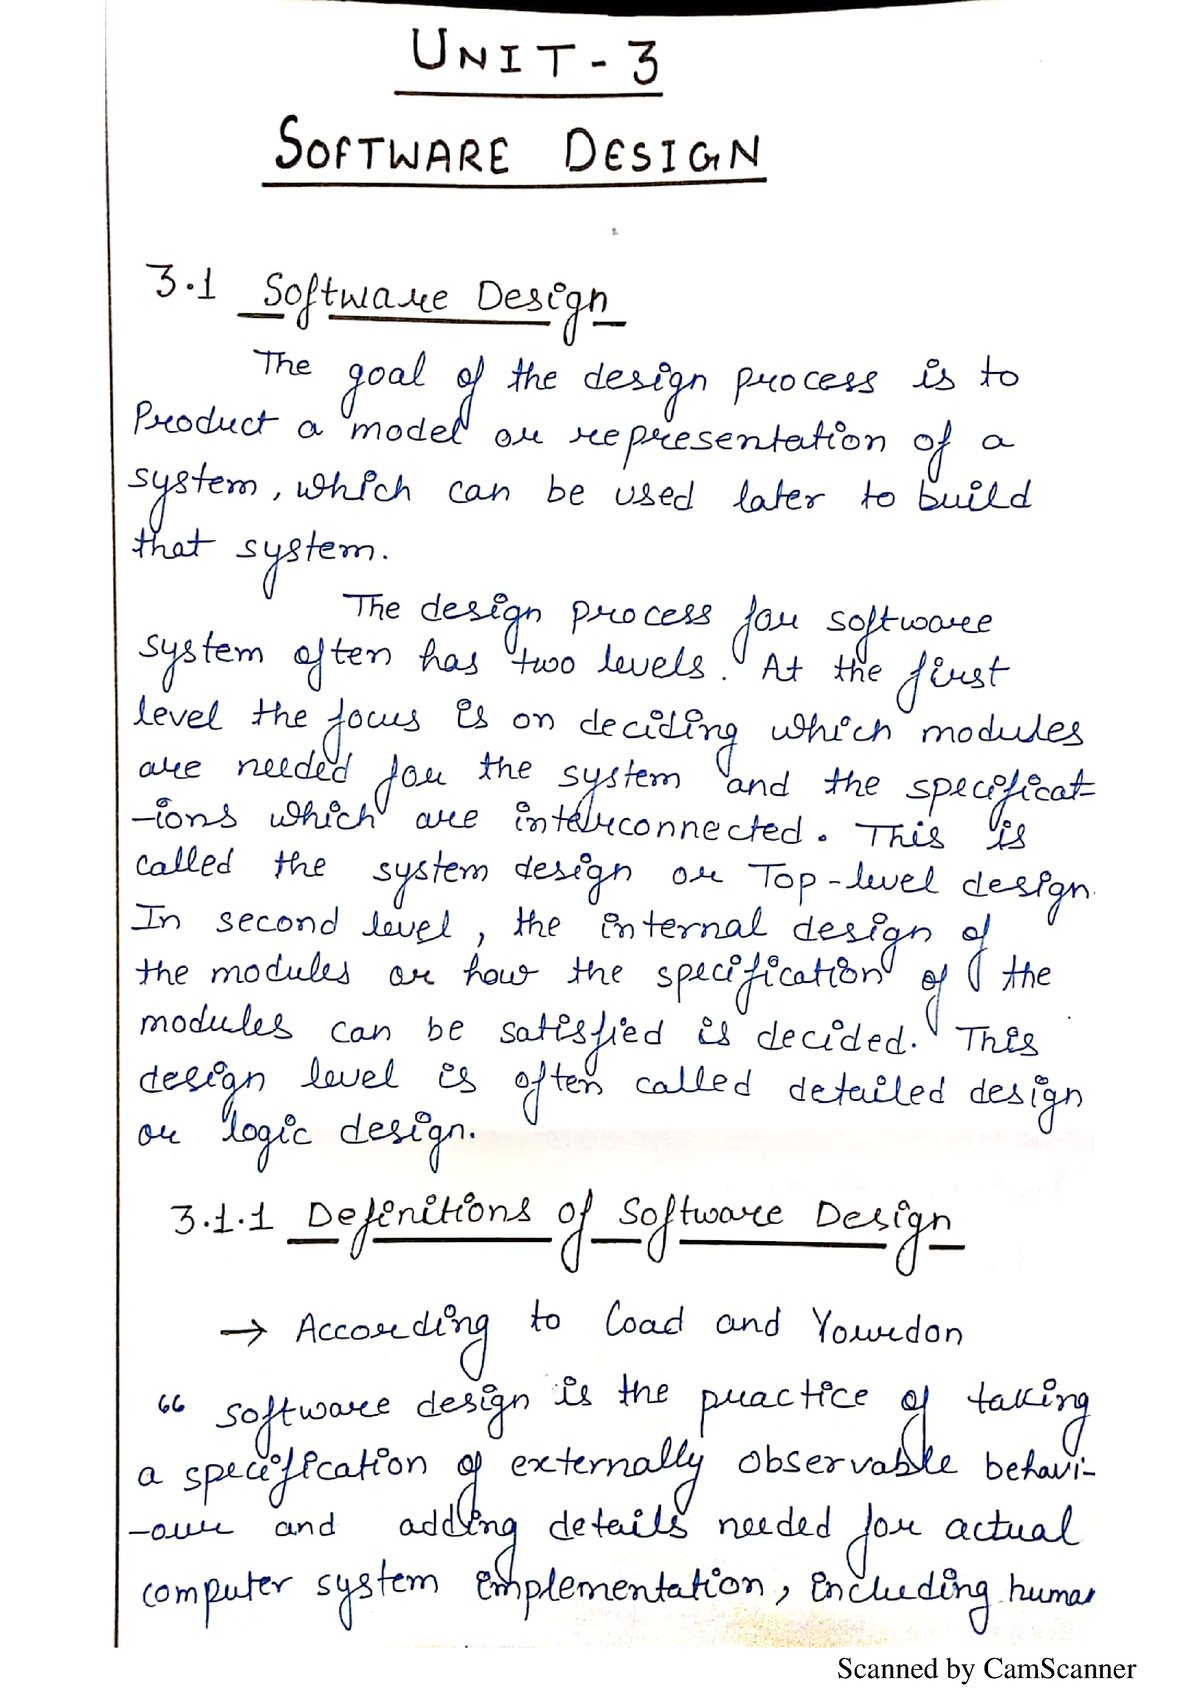 UNIT - 3
SOFTWARE DESIGN
3.1 Software Design
The goal of the design process is to
Product a model or representation of a
system, which can be used later to build
that system.
The design process for software
system often has two levels. At the first
level the focus is on deciding which modules
are needed for the system and the specificat-
-ions which are interconnected. This is
called the system design or Top-level design.
In second level, the internal design of
the modules or how the specification of the
modules can be satisfied is decided. This
design level is often called detailed design
or logic design.
3.1.1 Definitions of Software Design
→ According to Coad and Yourdon
“ Software design is the practice of taking
a specification of externally observable behavi-
-our and adding details needed for actual
computer system implementation, including human
Scanned by CamScanner